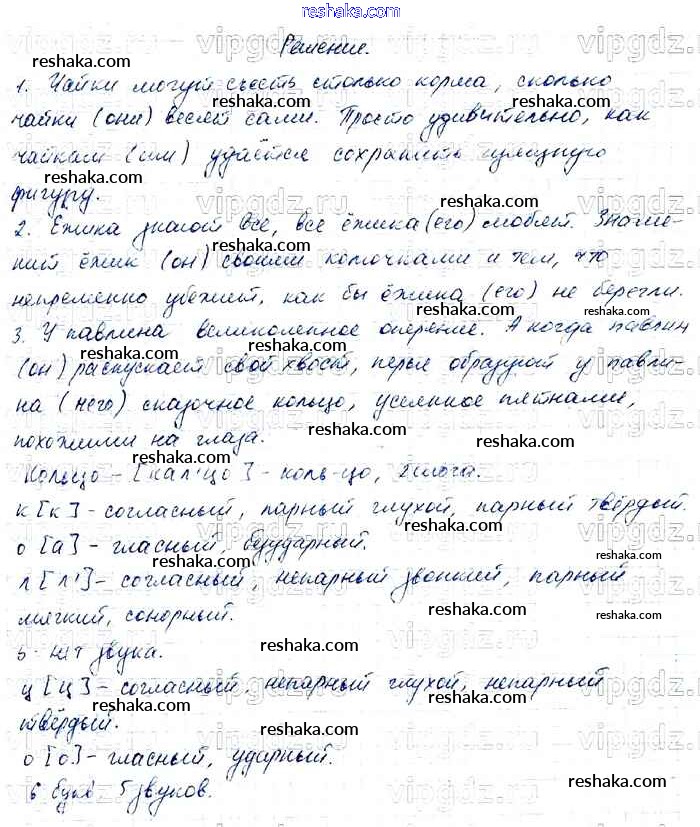 reshaka.com
Решение.
reshaka.com
1. Чайки могут съесть столько корма, сколько
reshaka.com
чайки (они) весят сами. Просто удивительно, как
reshaka.com
чайкам (им) удаётся сохранить изящную
reshaka.com
фигуру.
reshaka.com
2. Ёжика знают все, все ёжика (его) любят. Знаме-
reshaka.com
нит ёжик (он) своими колючками и тем, что
reshaka.com
непременно убежит, как бы ёжика (его) не берегли.
reshaka.com
3. У павлина великолепное оперение. А когда павлин
reshaka.com
(он) распускает свой хвост, перья образуют у павли-
reshaka.com
на (него) сказочное кольцо, усеянное пятнами,
reshaka.com
похожими на глаза.
reshaka.com
Кольцо – [кал'цо] – коль-цо, 2 слога.
reshaka.com
к [к] – согласный, парный глухой, парный твёрдый.
reshaka.com
о [а] – гласный, безударный.
reshaka.com
л [л'] – согласный, непарный звонкий, парный
reshaka.com
мягкий, сонорный.
reshaka.com
ь – нет звука.
reshaka.com
ц [ц] – согласный, непарный глухой, непарный
reshaka.com
твёрдый.
reshaka.com
о [о] – гласный, ударный.
reshaka.com
6 букв, 5 звуков.
reshaka.com